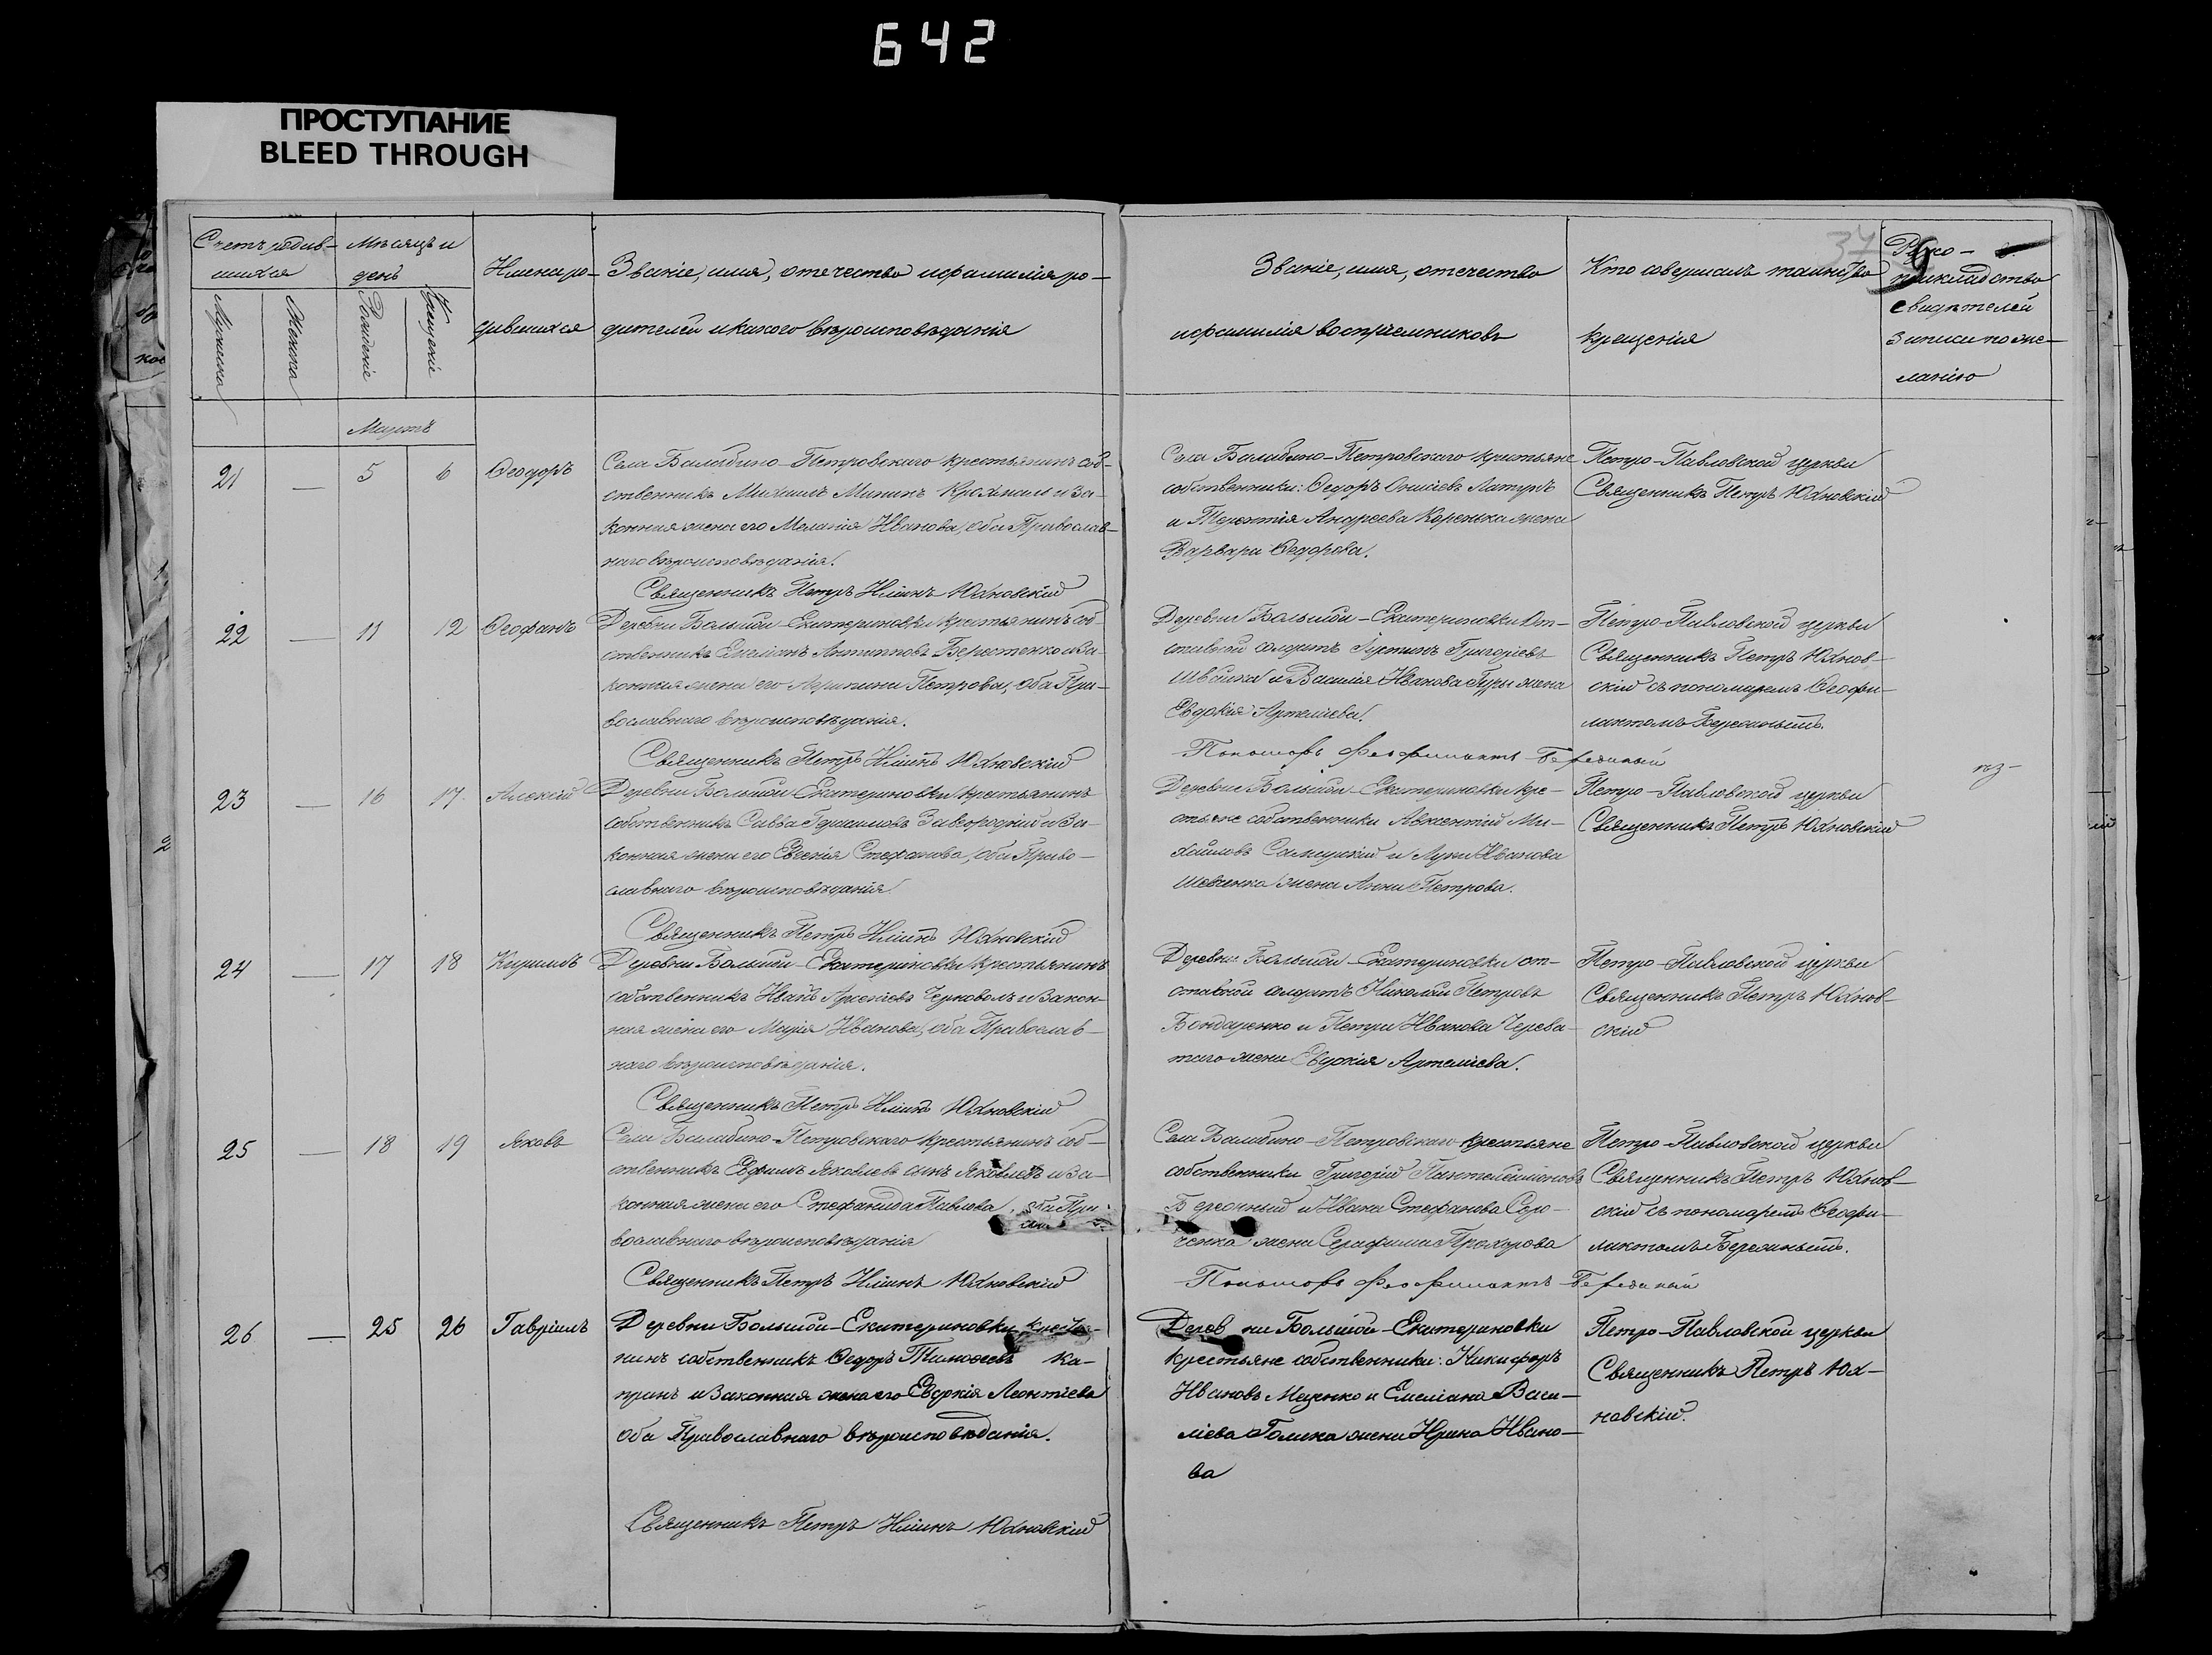 642
ПРОСТУПАНИЕ
BLEED THROUGH
Счетъ родив-
шихся
Мѣсяцъ и
день
Имена ро-
дившихся
Мужеска
Женска
Рожденіе
Крещеніе
Званіе, имя, отечество и фамилія ро-
дителей и какого вѣроисповѣданія
Званіе, имя, отечество
и фамилія воспріемниковъ
Кто совершалъ таинство
крещенія
Руко-
прикладство
свидѣтелей
записи по же-
ланію
Мартъ
21 — 5 6 Ѳеодоръ
Села Балабино-Петровскаго крестьянинъ соб-
ственникъ Михаилъ Мининъ Крохмаль и за-
конная жена его Меланія Иванова, оба Православ-
наго вѣроисповѣданія.
Священникъ Петръ Іліинъ Юхновскій
Села Балабино-Петровскаго крестьяне
собственники: Ѳедоръ Онисіевъ Латуръ
и Терентія Андреева Коренька жена
Варвара Ѳедорова.
Петро-Павловской церкви
Священникъ Петръ Юхновскій
22 — 11 12 Ѳеофанъ
Деревни Большой-Екатериновки крестьянинъ соб-
ственникъ Емеліанъ Антиповъ Берестенко и за-
конная жена его Агрипина Петрова, оба Пра-
вославнаго вѣроисповѣданія.
Священникъ Петръ Іліинъ Юхновскій
Деревни Большой-Екатериновки от-
ставной солдатъ Григоріевъ
Швайка и Василія Иванова Гуры жена
Евдокія Артеміева.
Пономарь Феофилактъ Береженый
Петро-Павловской церкви
Священникъ Петръ Юхнов-
скій съ пономаремъ Ѳеофи-
лактомъ
23 — 16 17 Алексій
Деревни Большой Екатериновки крестьянинъ
собственникъ Савва Герасимовъ Завгородній и за-
конная жена его Евгенія Стефанова, оба Право-
славнаго вѣроисповѣданія
Священникъ Петръ Іліинъ Юхновскій
Деревни Большой-Екатериновки кре-
стьяне собственники Авксентій Ми-
хайловъ и Луки Иванова
Шевченка жена Анна Петрова.
Петро-Павловской церкви
Священникъ Петръ Юхновскій
24 — 17 18 Кириллъ
Деревни Большой-Екатериновки крестьянинъ
собственникъ Иванъ Арсеніевъ Чорноволъ и закон-
ная жена его Марія Иванова, оба Православ-
наго вѣроисповѣданія.
Священникъ Петръ Іліинъ Юхновскій
Деревни Большой-Екатериновки от-
ставной солдатъ Николай Петровъ
Бондаренко и Петра Иванова Черева-
таго жена Евдокія Артеміева.
Петро-Павловской церкви
Священникъ Петръ Юхнов-
скій
25 — 18 19 Яковъ
Села Балабино-Петровскаго крестьянинъ соб-
ственникъ Евфимъ Яковлевъ сынъ Яковлевъ и за-
конная жена его Стефанида Павлова, оба Пра-
вославнаго вѣроисповѣданія
Священникъ Петръ Іліинъ Юхновскій
Села Балабино-Петровскаго крестьяне
собственники Григорій Пантелеимоновъ
и Ивана Стефанова Соро-
ченка жена Серафима Прохорова
Пономарь Феофилактъ Береженый
Петро-Павловской церкви
Священникъ Петръ Юхнов-
скій съ пономаремъ Ѳеофи-
лактомъ
26 — 25 26 Гавріилъ
Деревни Большой-Екатериновки крестья-
нинъ собственникъ Ѳедоръ Тимоѳеевъ Ка-
пранъ и законная жена его Евдокія Леонтіева
оба Православнаго вѣроисповѣданія.
Священникъ Петръ Іліинъ Юхновскій
Деревни Большой-Екатериновки
крестьяне собственники: Никифоръ
Ивановъ Маценко и Емеліана Васи-
ліева Голика жена Ирина Ивано-
ва
Петро-Павловской церкви
Священникъ Петръ Юх-
новскій.